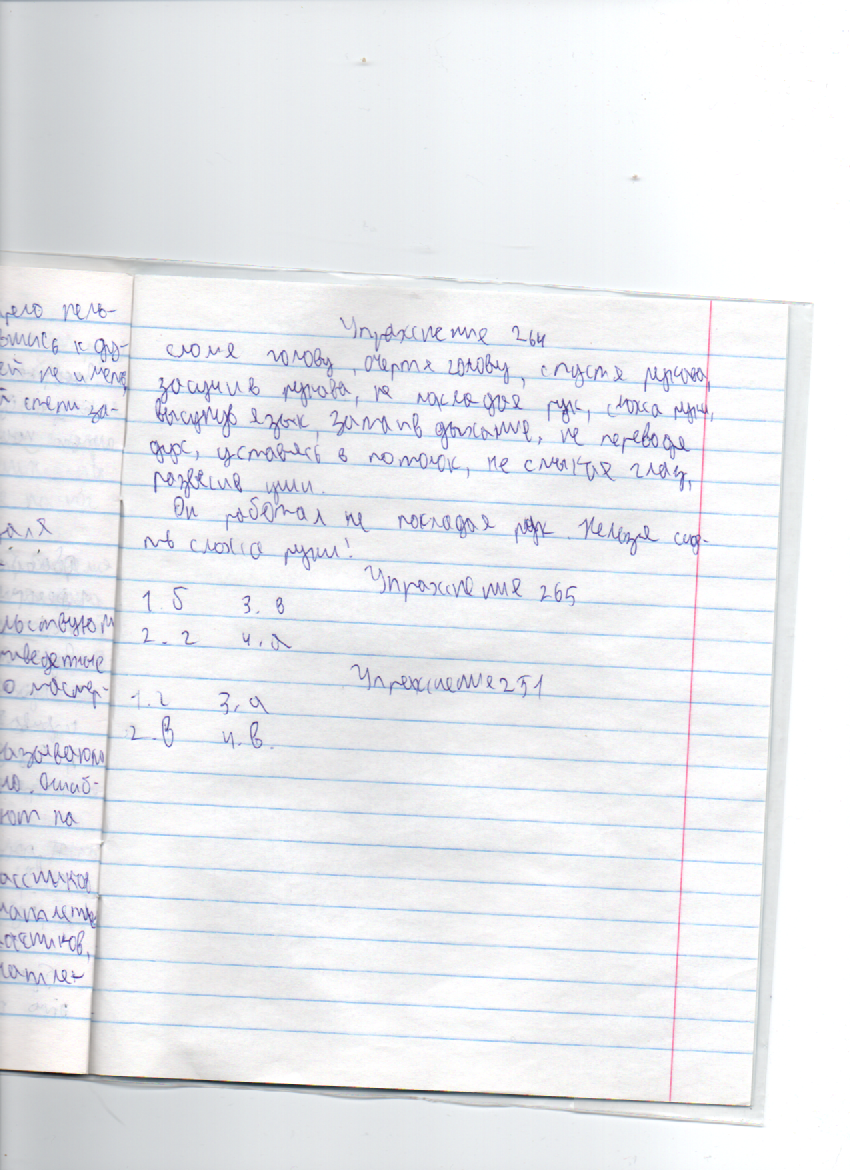 дело пель-
вшись к дру-
ей не имело,
й степи за-
аля
льствуют
тиведетные
о мастер-
азывают
ло. Ошиб-
ют на
ассиков
Упражнение 264
сломя голову, очертя голову, спустя рукава,
засучив рукава, не покладая рук, сложа руки,
высунув язык, затаив дыхание, не переводя
дух, уставясь в потолок, не смыкая глаз,
развесив уши.
Он работал не покладая рук. Нельзя сид-
ть сложа руки!
Упражнение 265
1. б 3. в
2. г 4. а
Упражнение 251
1. г 3. а
2. в 4. в.